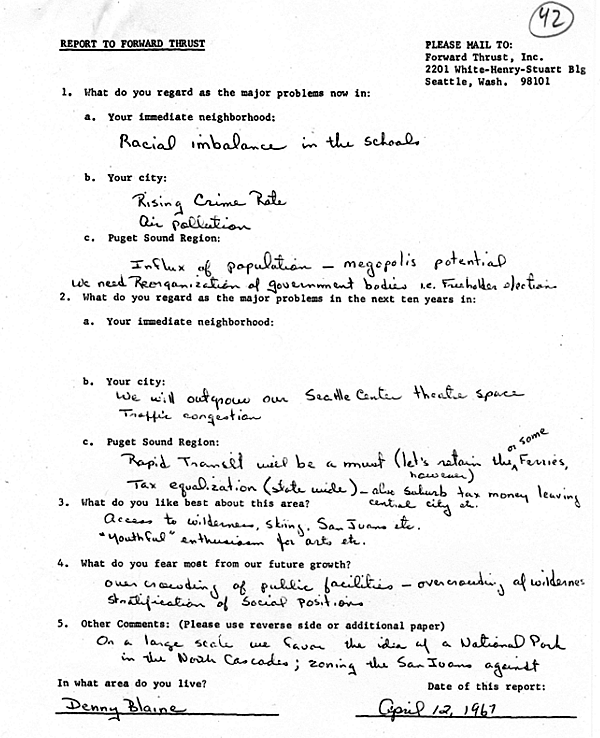 42
REPORT TO FORWARD THRUST
PLEASE MAIL TO:
Forward Thrust, Inc.
2201 White-Henry-Stuart Blg
Seattle, Wash. 98101
1. What do you regard as the major problems now in:
a. Your immediate neighborhood:
Racial imbalance in the schools
b. Your city:
Rising Crime Rate
Air pollution
c. Puget Sound Region:
Influx of population — megopolis potential
We need Reorganization of government bodies i.e. Freeholder election
2. What do you regard as the major problems in the next ten years in:
a. Your immediate neighborhood:
b. Your city:
We will outgrow our Seattle Center theatre space
Traffic congestion
c. Puget Sound Region:
or some
Rapid Transit will be a must (let's retain the Ferries,
however)
Tax equalization (state wide) – also suburb tax money leaving
central city etc.
3. What do you like best about this area?
Access to wilderness, skiing, San Juans etc.
"Youthful" enthusiasm for arts etc.
4. What do you fear most from our future growth?
over crowding of public facilities — overcrowding of wilderness
stratification of social positions
5. Other Comments: (Please use reverse side or additional paper)
On a large scale we favor the idea of a National Park
in the North Cascades; zoning the San Juans against
In what area do you live?
Date of this report:
Denny Blaine
April 12, 1967